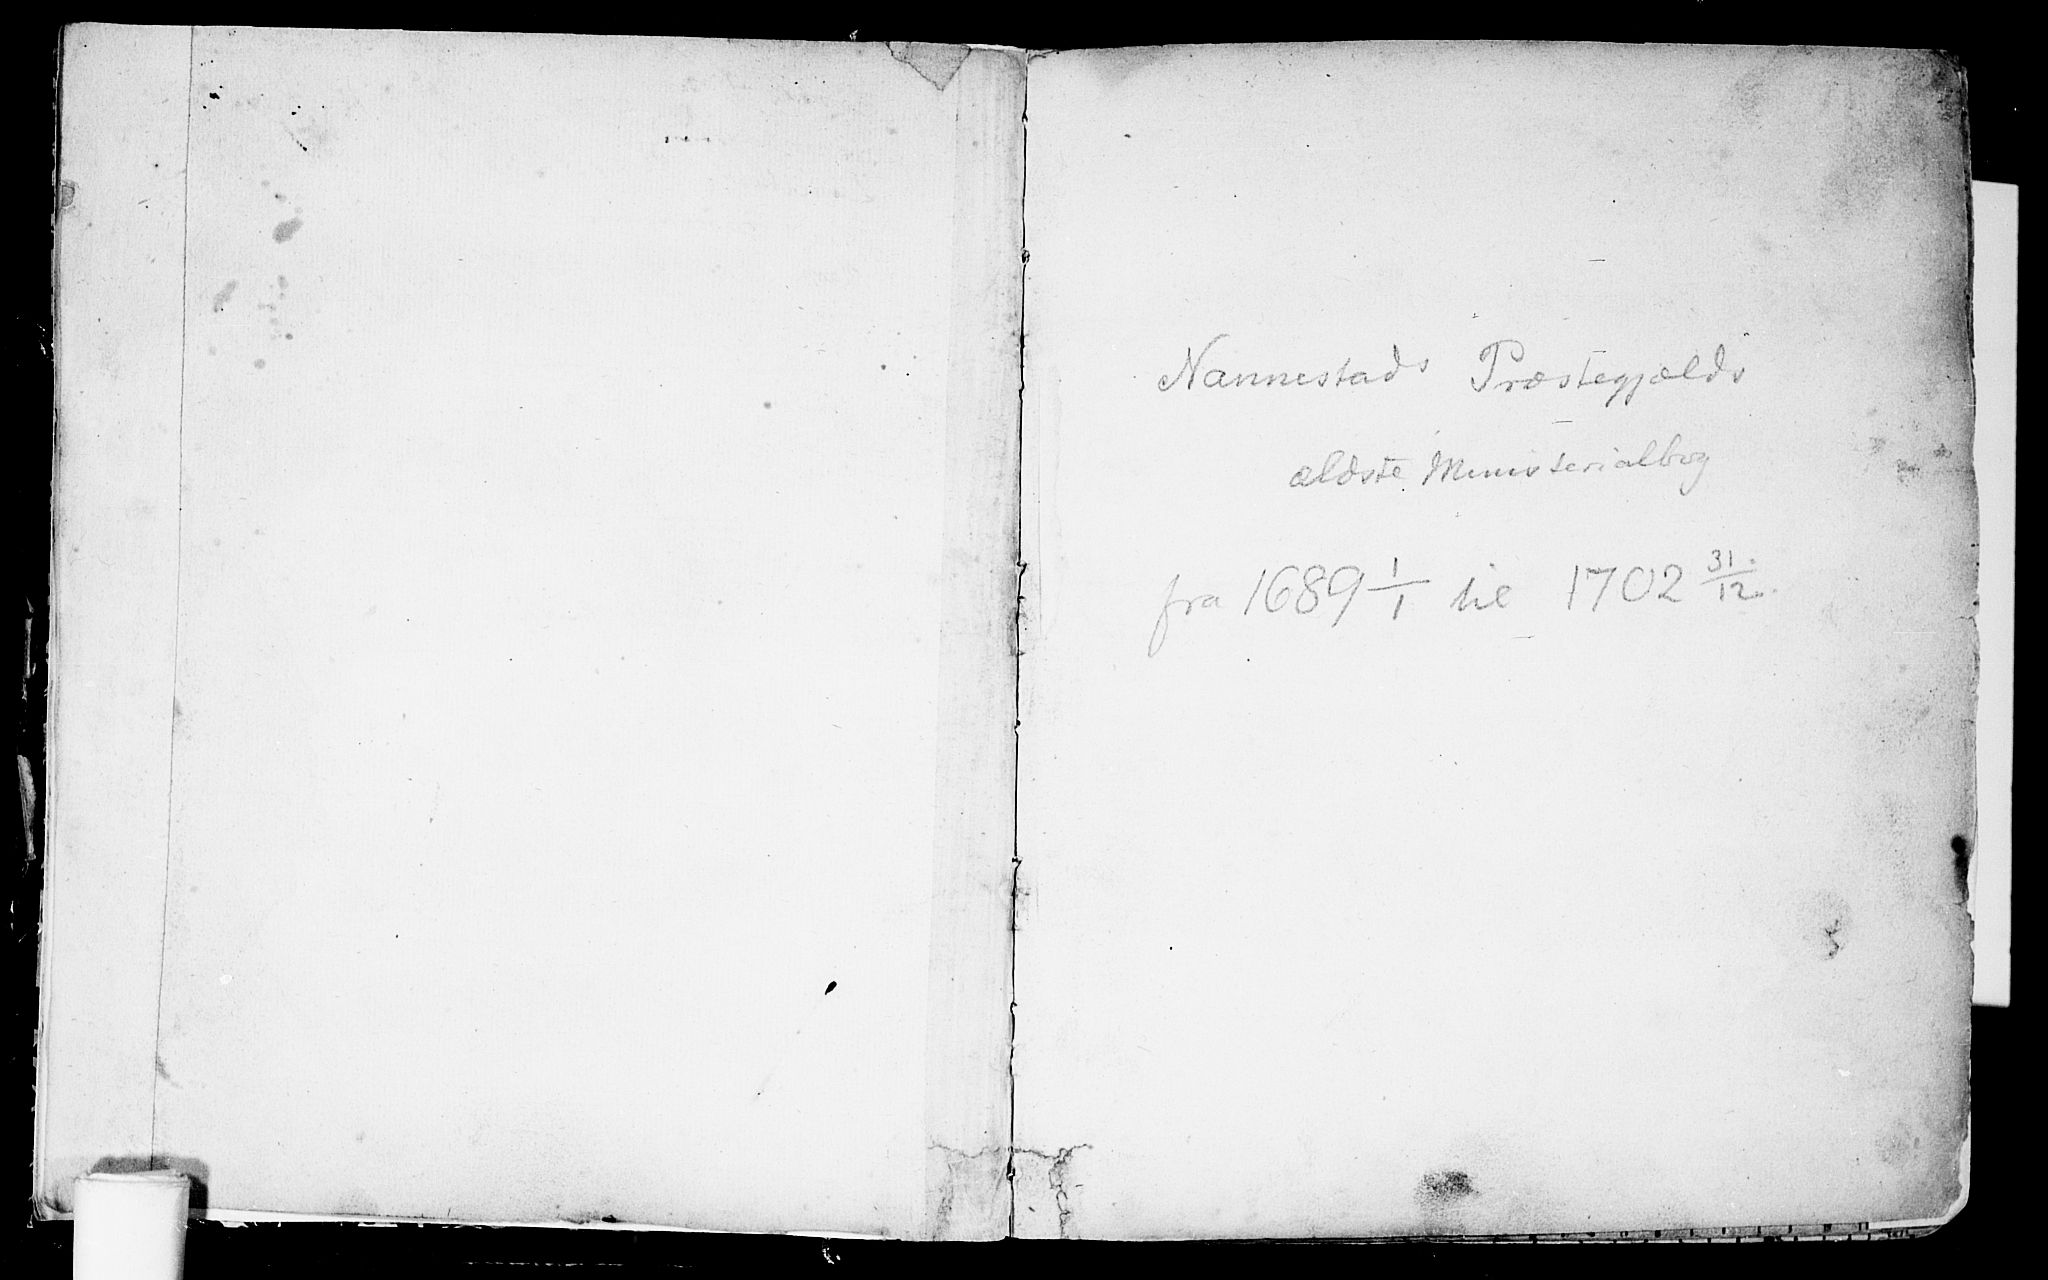 Nannestads Præstegjælds
ældste Ministerialbog
fra 1689 1/1 til 1702 31/12.